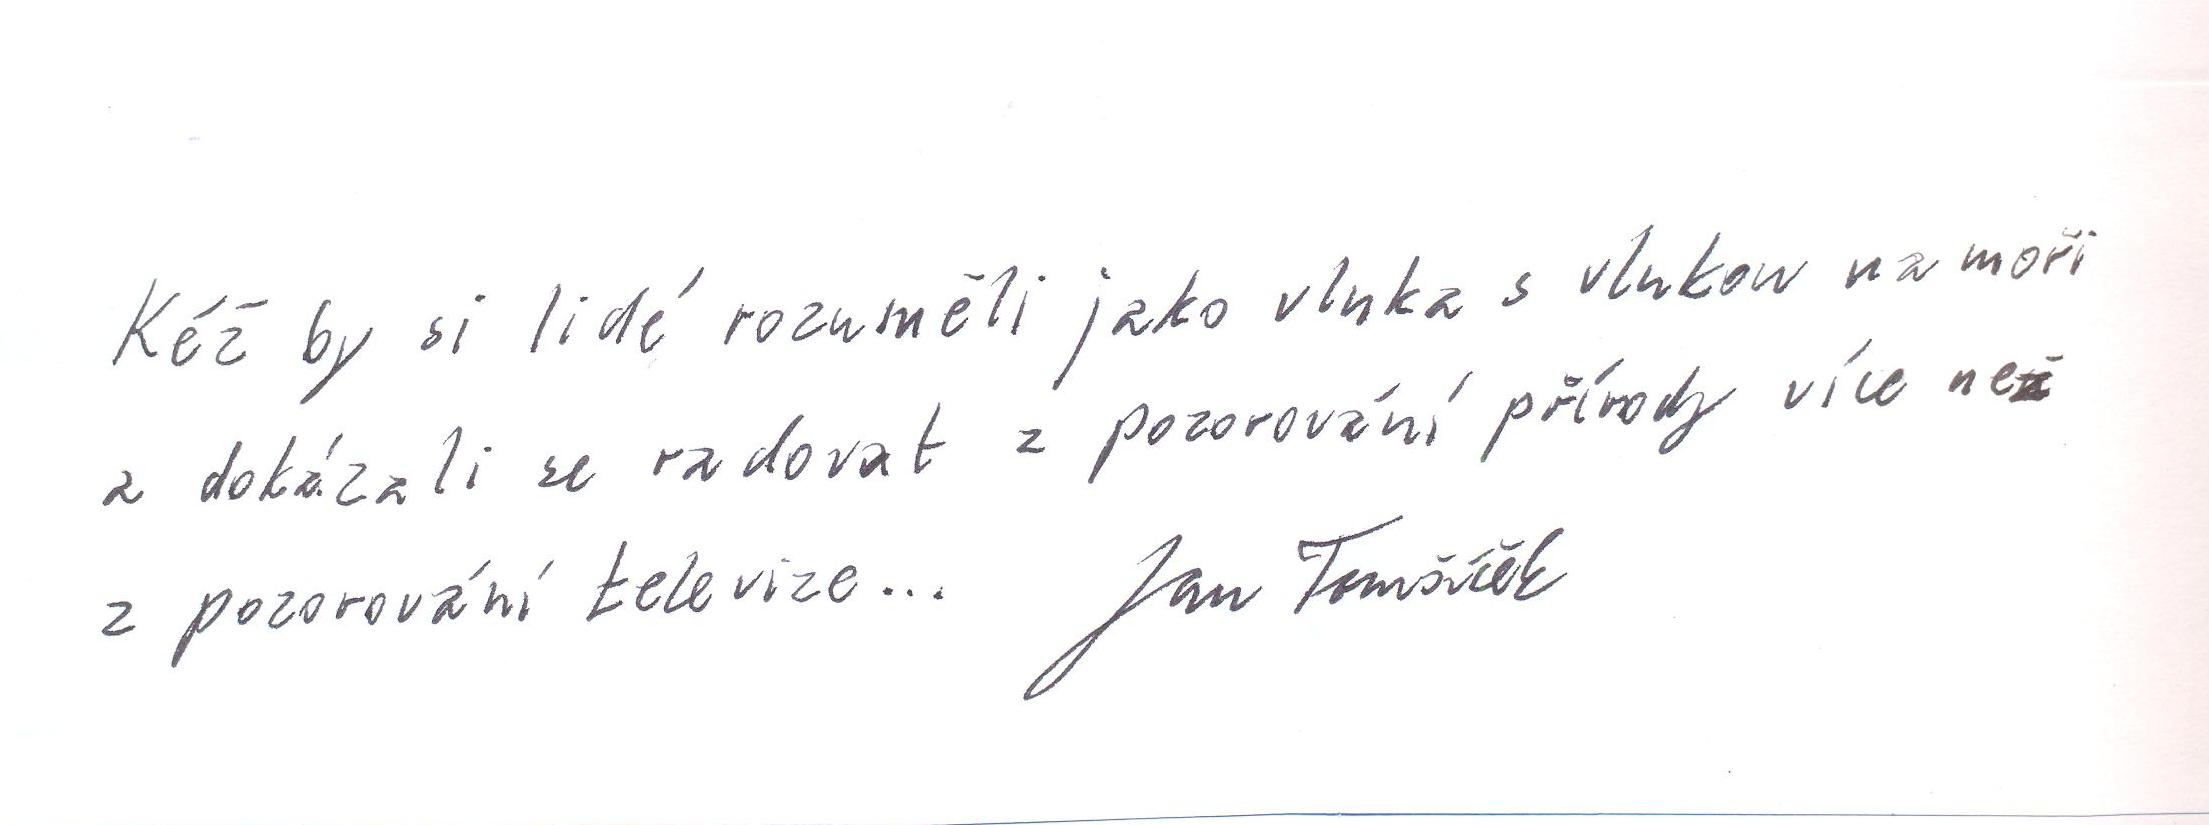 Kéž by si lidé rozuměli jako vlnka s vlnkou na moři
a dokázali se radovat z pozorování přírody více než
z pozorování televize... Jan Tomšíček